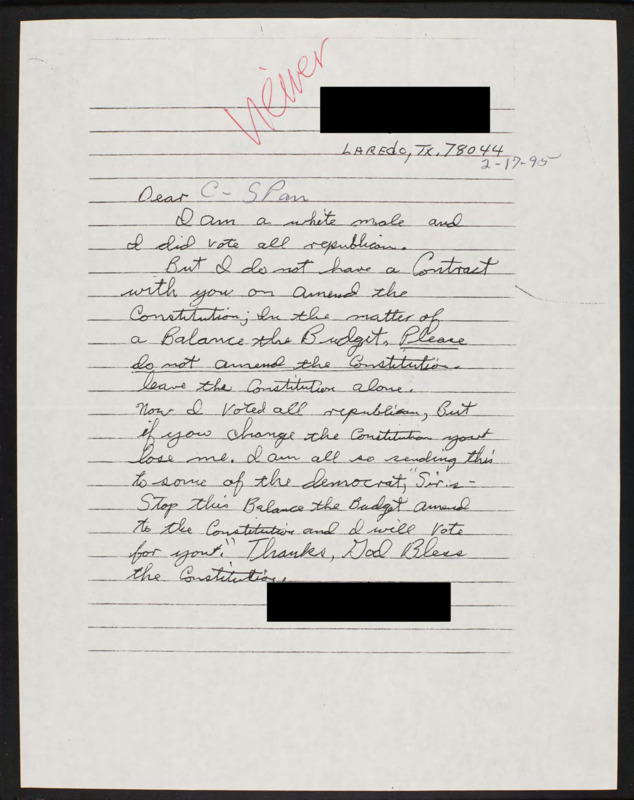 viewer
LAREDO, TX. 78044
2-17-95
Dear C-SPan
I am a white male and
I did vote all republican.
But I do not have a Contract
with you on amend the
Constitution; In the matter of
a Balance the Budget. Please
do not amend the Constitution.
leave the Constitution alone.
Now I Voted all republican, But
if you change the Constitution you
lose me. I am all so sending this
to some of the democrat, "Sir:-
Stop this Balance the Budget amend
to the Constitution and I will Vote
for you." Thanks, God Bless
the Constitution.